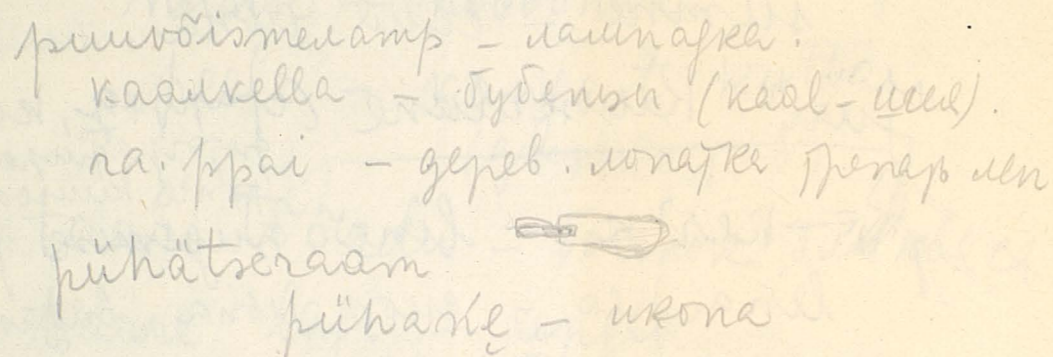 puuvõismelamp – лампадка.
kaalkella – бубенцы (kaal – шея).
ra.ppai – дерев. лопатка трепать лен
pühätseraam
pühake̬ – икона